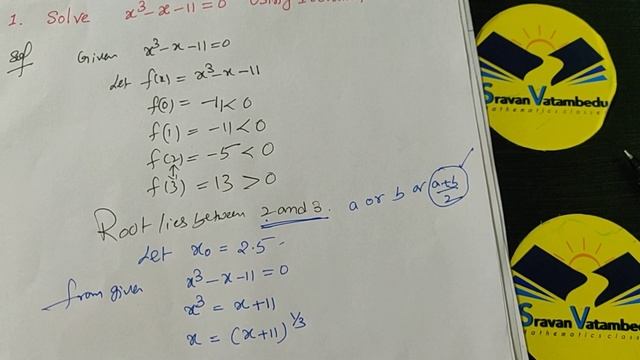 1. Solve x³-x-11=0 using
Sol Given x³-x-11=0
Let f(x) = x³-x-11
f(0) = -11<0
f(1) = -11<0
f(2) = -5<0
↑
f(3) = 13 >0
Root lies between 2 and 3. a or b or (a+b)/2
Let x₀ = 2.5
from given x³-x-11=0
x³ = x+11
x = (x+11)^1/3
Sravan Vatambedu
Mathematics classes
Sravan Vatambedu